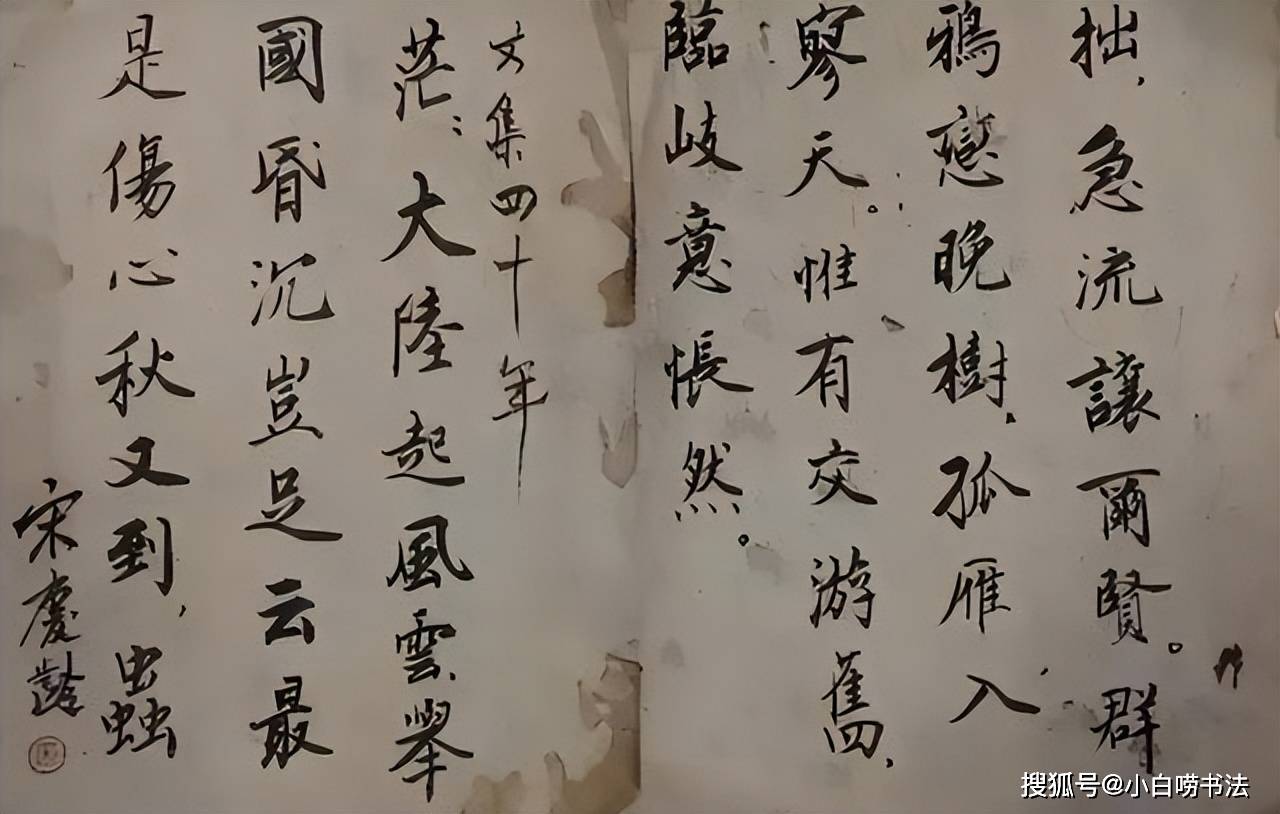 拙，急流讓爾賢。群
鴉戀晚樹，孤雁入
寥天。惟有交游舊，
臨岐意悵然。
文集四十年
茫：大陸起風雲，舉
國昏沉豈足云最
是傷心秋又到，蟲
宋慶齡
搜狐号@小白唠书法